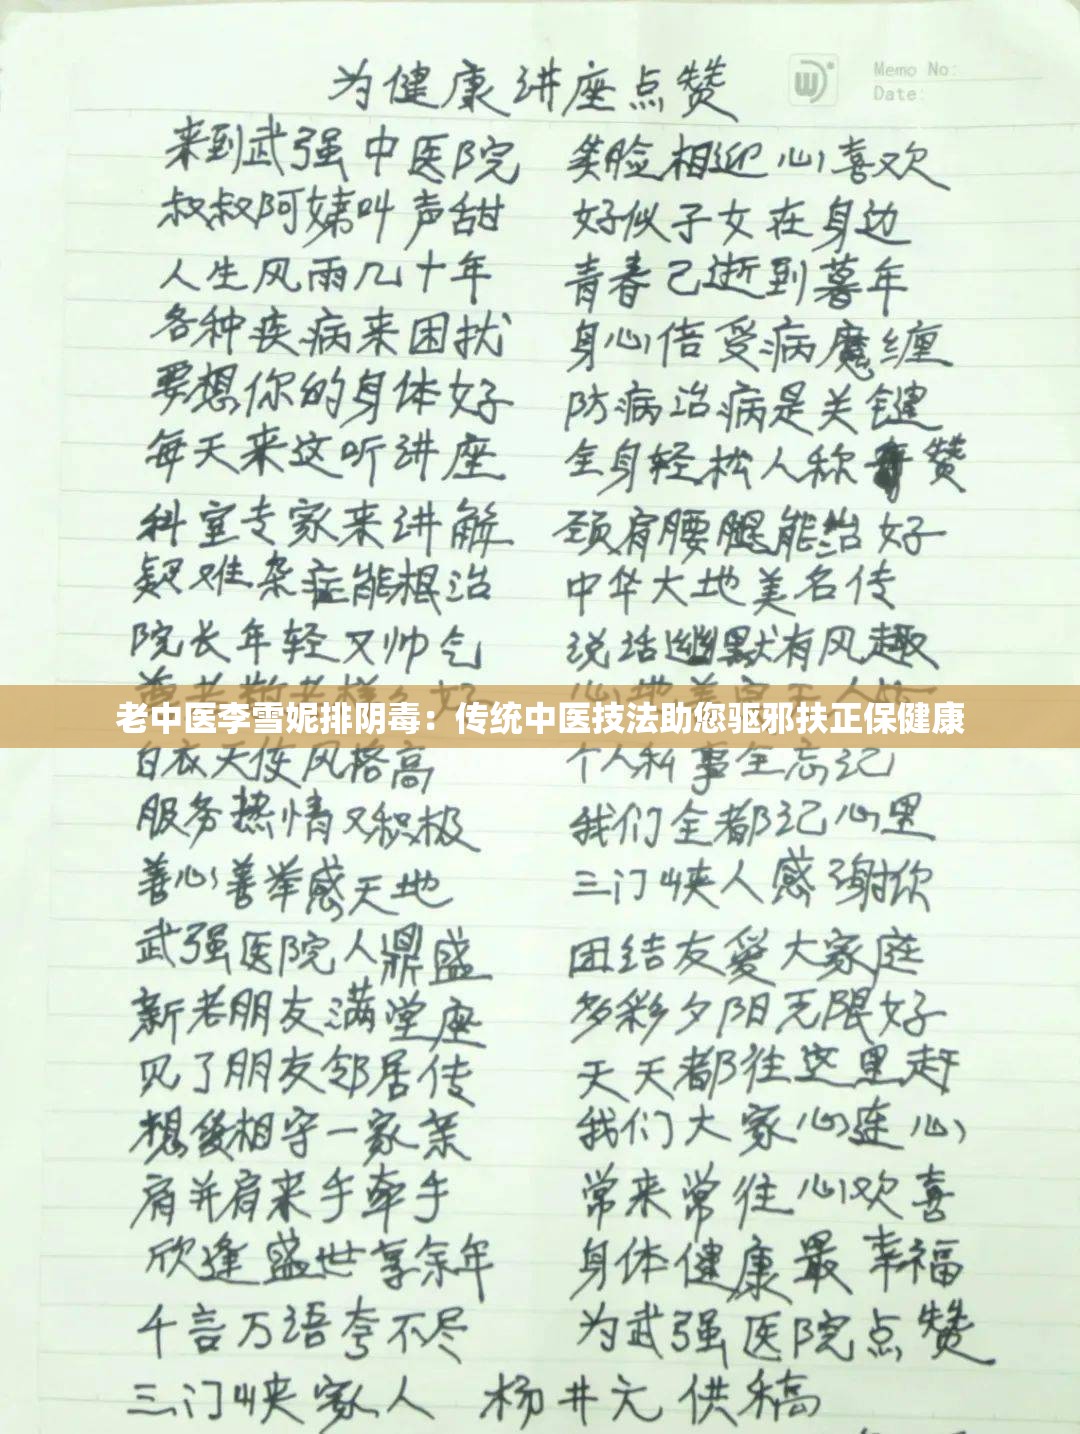 为健康讲座点赞
Memo No:
Date:
来到武强中医院 笑脸相迎心喜欢
叔叔阿姨叫声甜 好似子女在身边
人生风雨几十年 青春已逝到暮年
各种疾病来困扰 身心倍受病魔缠
要想你的身体好 防病治病是关键
每天来这听讲座 全身轻松人称赞
科室专家来讲解 颈肩腰腿能治好
疑难杂症能根治 中华大地美名传
院长年轻又帅气 说话幽默有风趣
老中医李雪妮排阴毒：传统中医技法助您驱邪扶正保健康
白衣天使风格高 个人私事全忘记
服务热情又积极 我们全都记心里
善心善举感天地 三门峡人感谢你
武强医院人鼎盛 团结友爱大家庭
新老朋友满堂座 多彩夕阳无限好
见了朋友邻居传 天天都往这里赶
想爱相守一家亲 我们大家心连心
肩并肩来手牵手 常来常往心欢喜
欣逢盛世享余年 身体健康最幸福
千言万语夸不尽 为武强医院点赞
三门峡家人 杨井元供稿